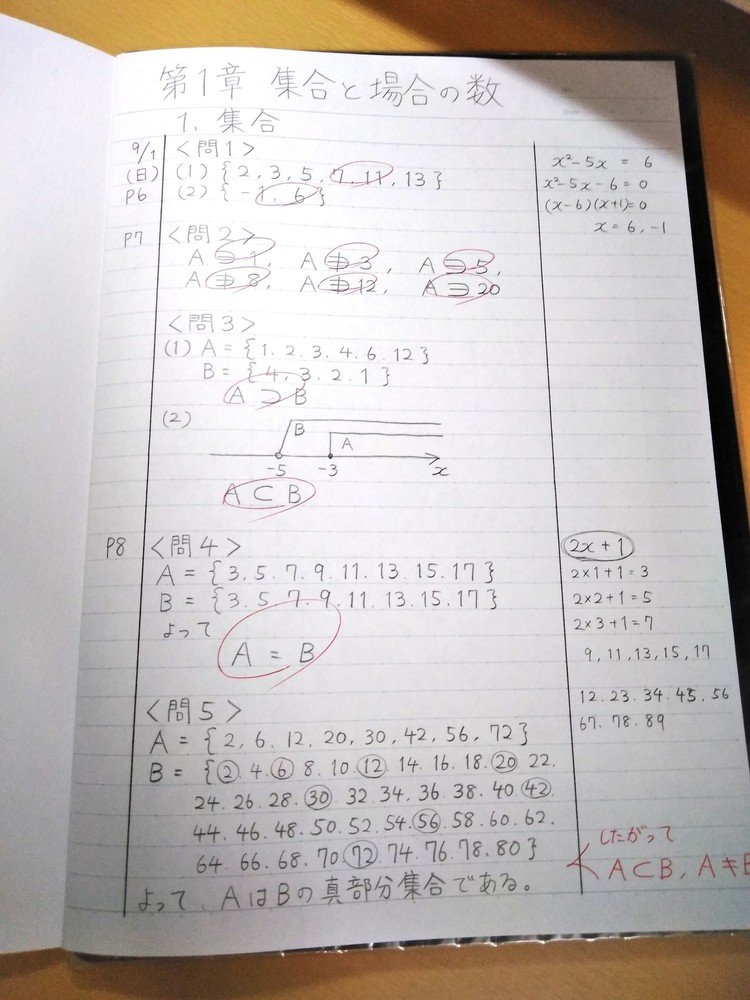 第1章 集合と場合の数
1. 集合
9/1
(日)
P6
<問1>
(1) { 2, 3, 5, 7, 11, 13 }
(2) { -1, 6 }
x²-5x = 6
x²-5x-6=0
(x-6)(x+1)=0
x = 6, -1
P7 <問2>
A ∋ 1, A ∌ 3, A ∋ 5,
A ∌ 8, A ∌ 12, A ∋ 20
<問3>
(1) A = { 1. 2. 3. 4. 6. 12 }
B = { 4, 3. 2. 1 }
A ⊃ B
(2)
B
A
-5 -3 x
A ⊂ B
P8 <問4>
A = { 3. 5. 7. 9. 11. 13. 15. 17 }
B = { 3. 5. 7. 9. 11. 13. 15. 17 }
よって
A = B
2x+1
2×1+1=3
2×2+1=5
2×3+1=7
9, 11, 13, 15, 17
<問5>
A = { 2, 6. 12, 20, 30, 42, 56, 72 }
B = { 2. 4. 6. 8. 10. 12. 14. 16. 18. 20. 22.
24. 26. 28. 30. 32. 34. 36. 38. 40. 42.
44. 46. 48. 50. 52. 54. 56. 58. 60. 62.
64. 66. 68. 70. 72. 74. 76. 78. 80 }
よって、AはBの真部分集合である。
12. 23. 34. 45, 56
67. 78. 89
したがって
A⊂B, A≠B